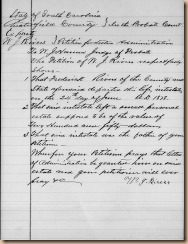 State of South Carolina
Chesterfield County } In the Probate Court
Ex parte
W. J. Rivers } Petition for Letters Administration
To W. J. Hanna Judge of Probate
The Petition of W. J. Rivers respectfully
Shows
1 That Frederick Rivers of the County and
State aforesaid departed this life intestate
on the 20 day of June A.D. 1898.
2 That said intestate left a small personal
estate supposed to be of the value of
Two hundred and fifty dollars
3 That said intestate was the father of your
Petitioner
Wherefore your Petitioner prays that letters
of Administration be granted him on said
estate and your petitioner will ever
pray &c W. J. Rivers